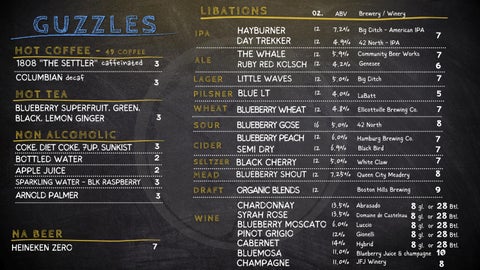 GUZZLES
HOT COFFEE - 49 COFFEE
1808 "THE SETTLER" caffeinated 3
COLUMBIAN decaf 3
HOT TEA
BLUEBERRY SUPERFRUIT. GREEN.
BLACK. LEMON GINGER 3
NON ALCOHOLIC
COKE. DIET COKE. 7UP. SUNKIST 3
BOTTLED WATER 2
APPLE JUICE 2
SPARKLING WATER - BLK RASPBERRY 3
ARNOLD PALMER 3
NA BEER
HEINEKEN ZERO 7
LIBATIONS OZ. ABV Brewery / Winery
IPA HAYBURNER 12 7.2% Big Ditch - American IPA 7
DAY TREKKER 12 6.9% 42 North - IPA
ALE THE WHALE 12 5.9% Community Beer Works 7
RUBY RED KOLSCH 12 Genesee 6
LAGER LITTLE WAVES 12 5.0% Big Ditch 7
PILSNER BLUE LT 12 4.0% LaBatt 5
WHEAT BLUEBERRY WHEAT 12 Ellicottville Brewing Co. 7
SOUR BLUEBERRY GOSE 16 5.0% 42 North 8
CIDER BLUEBERRY PEACH 12 6.0% Hamburg Brewing Co. 7
SEMI DRY 12 Black Bird 7
SELTZER BLACK CHERRY 12 5.0% White Claw 7
MEAD BLUEBERRY SHOUT 12 7.25% Queen City Meadery 8
DRAFT ORGANIC BLENDS 12 Boston Hills Brewing 9
WINE CHARDONNAY 13.5% Abrasado 8 gl. or 28 Btl.
SYRAH ROSE 13.5% Domaine de Castelnau 8 gl. or 28 Btl.
BLUEBERRY MOSCATO 6.0% Luccio 8 gl. or 28 Btl.
PINOT GRIGIO 12% Gionelli 8 gl. or 28 Btl.
CABERNET 14% Hybrid 8 gl. or 28 Btl.
BLUEMOSA Blueberry Juice & champagne 10
CHAMPAGNE 11% JFJ Winery 8